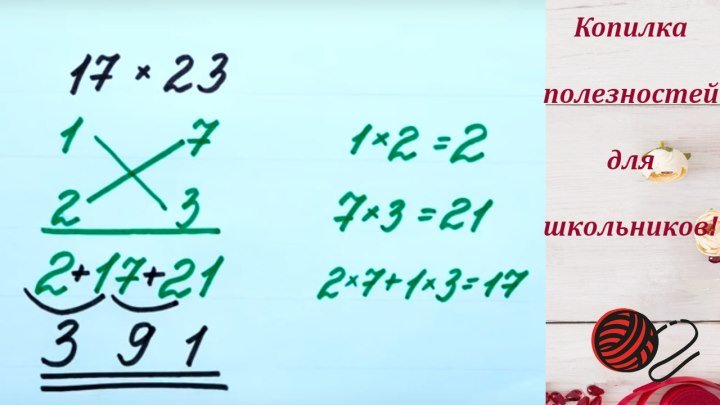 17 × 23
1 7
2 3
2+17+21
3 9 1
1×2=2
7×3=21
2×7+1×3=17
Копилка
полезностей
для
школьников!